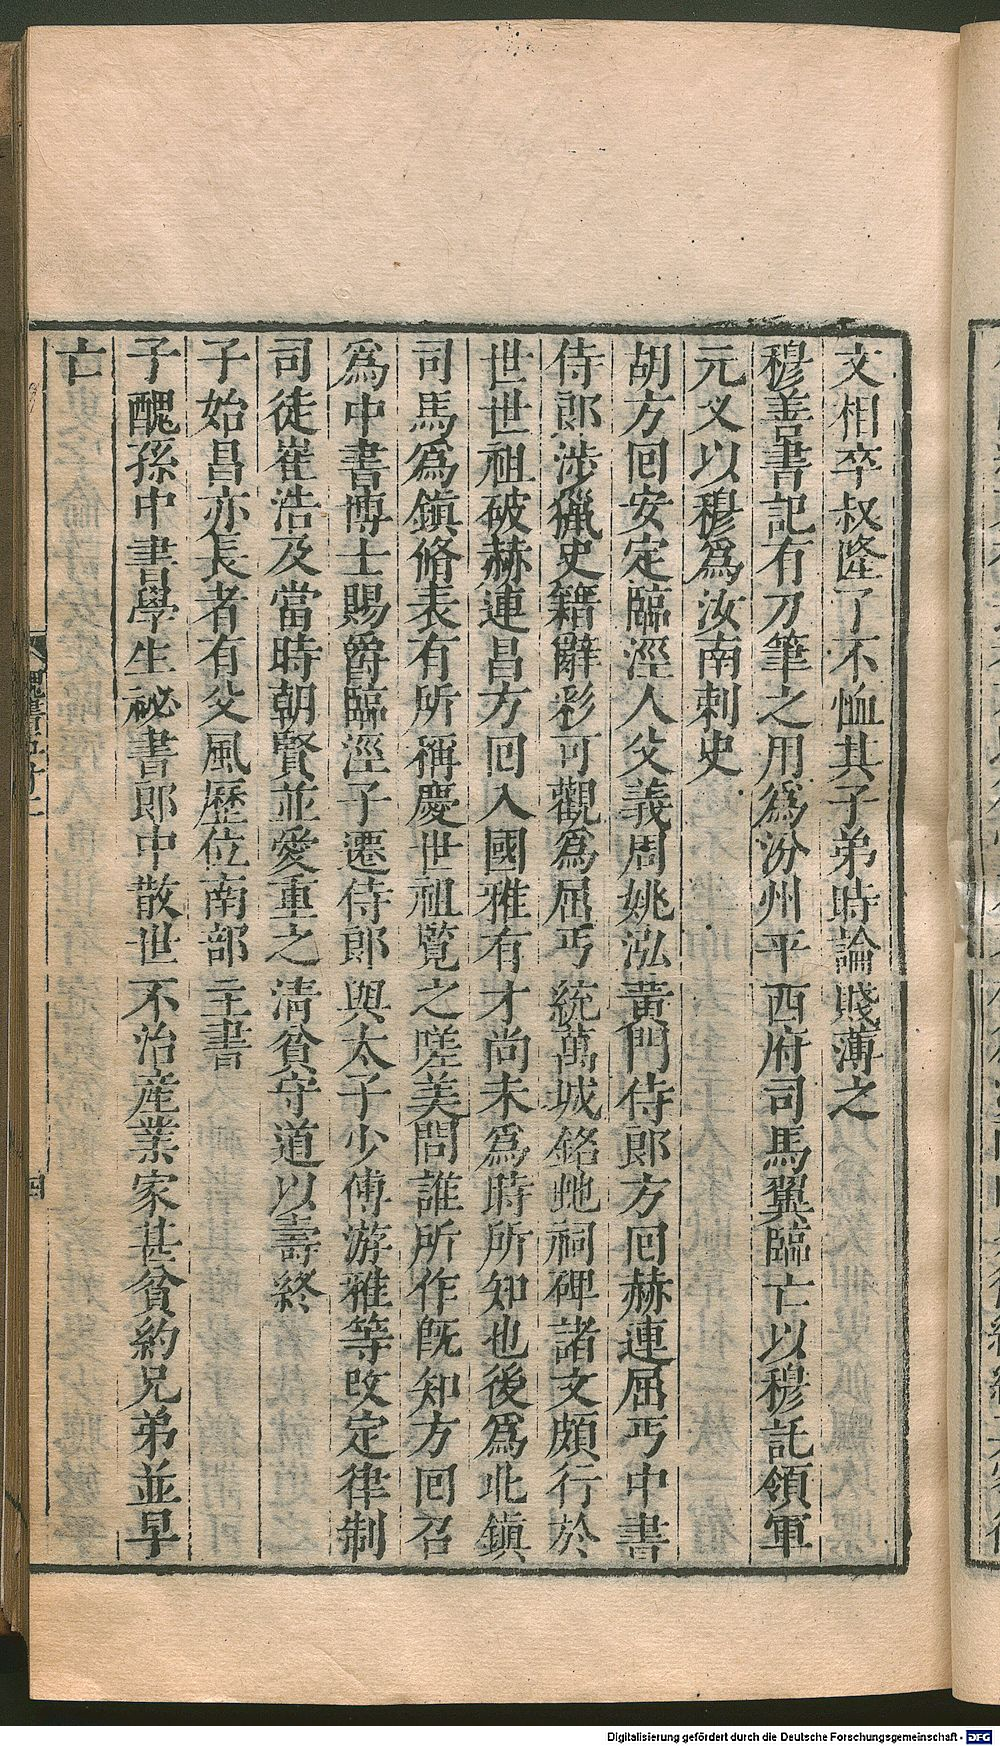 文相卒叔隆了不恤其子弟時論賤薄之
穆善書記有刀筆之用爲汾州平西府司馬翼臨亡以穆託領軍
元义以穆爲汝南刺史
胡方回安定臨涇人父義周姚泓黄門侍郎方回赫連屈丐中書
侍郎涉獵史籍辭彩可觀爲屈丐統萬城銘虵祠碑諸文頗行於
世世祖破赫連昌方回入國雅有才尚未爲時所知也後爲北鎮
司馬爲鎮脩表有所稱慶世祖覧之嗟美問誰所作旣知方回召
爲中書博士賜爵臨涇子遷侍郎與太子少傅游雅等改定律制
司徒崔浩及當時朝賢並愛重之清貧守道以壽終
子始昌亦長者有父風歷位南部主書
子醜孫中書學生祕書郎中散世不治産業家甚貧約兄弟並早
亡
魏書
四
Digitalisierung gefördert durch die Deutsche Forschungsgemeinschaft - DFG